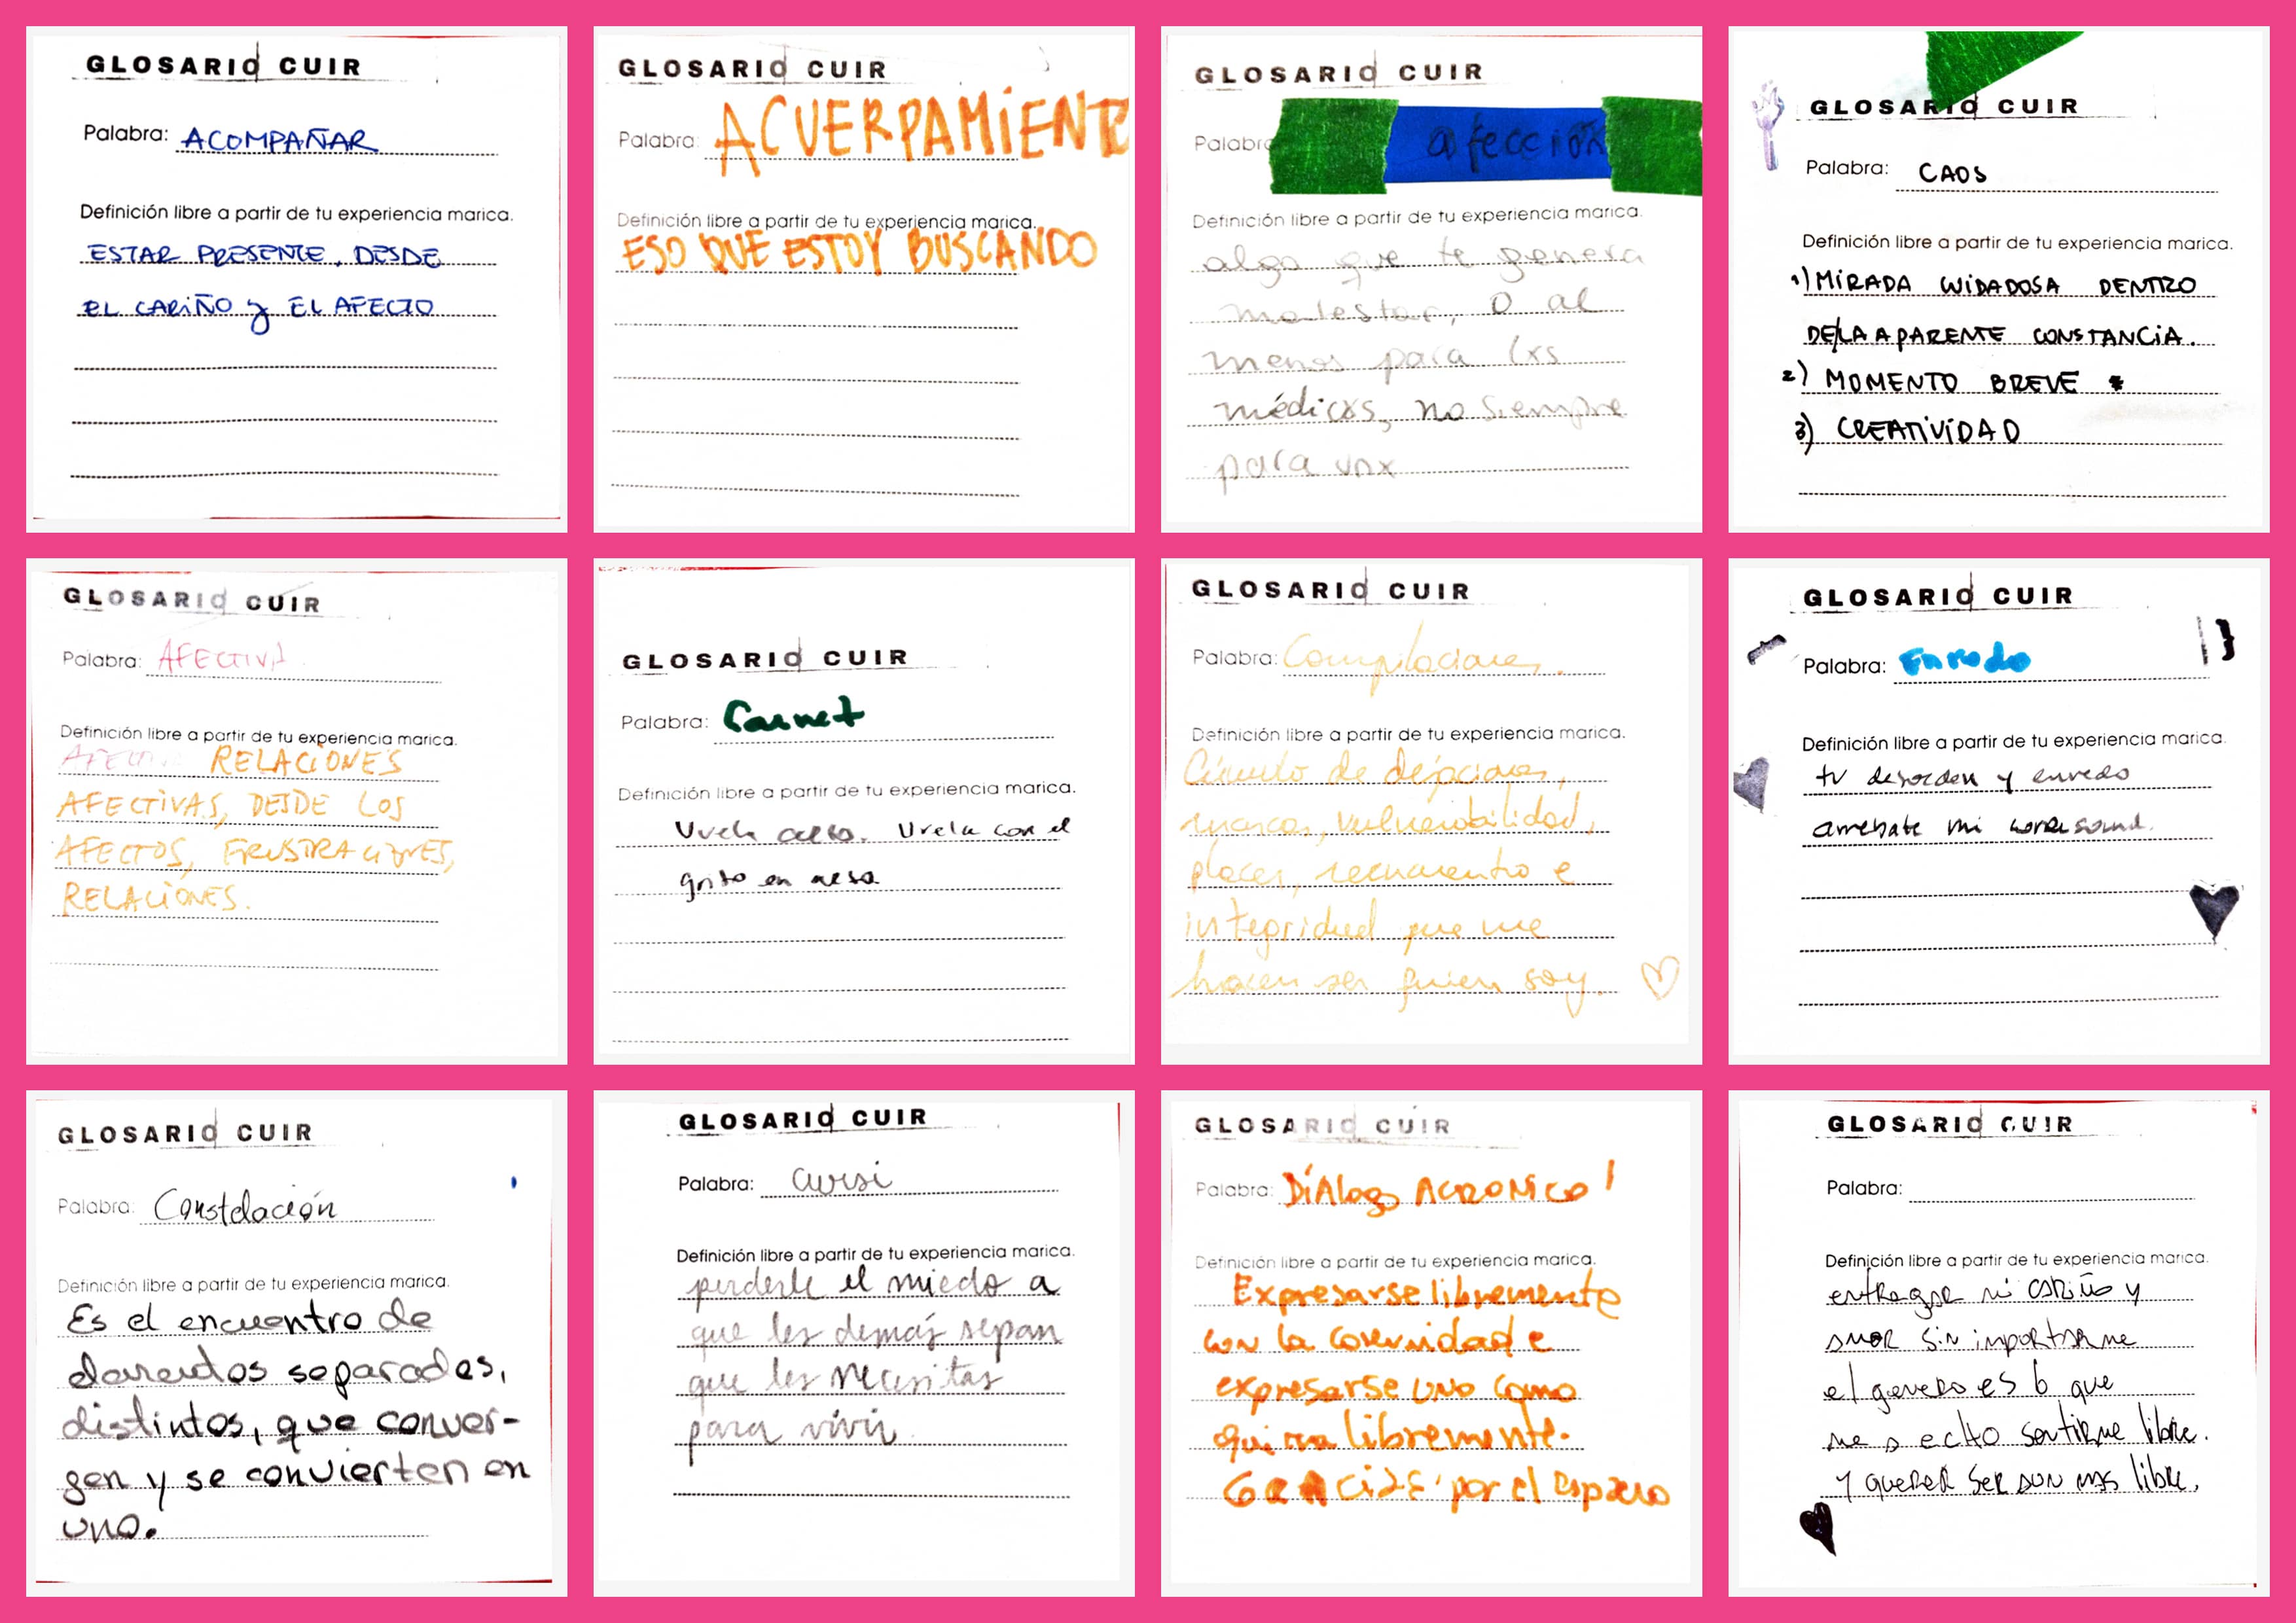 GLOSARIO CUIR
Palabra: ACOMPAÑAR
Definición libre a partir de tu experiencia marica.
ESTAR PRESENTE, DESDE
EL CARIÑO y EL AFECTO
GLOSARIO CUIR
Palabra: ACUERPAMIENTO
Definición libre a partir de tu experiencia marica.
ESO QUE ESTOY BUSCANDO
GLOSARIO CUIR
Palabra afección
Definición libre a partir de tu experiencia marica.
algo que te genera
malestar, o al
menos para lxs
médicxs, no siempre
para unx
GLOSARIO CUIR
Palabra: CAOS
Definición libre a partir de tu experiencia marica.
1) MIRADA CUIDADOSA DENTRO
DE/LA APARENTE CONSTANCIA.
2) MOMENTO BREVE *
3) CREATIVIDAD
GLOSARIO CUIR
Palabra: AFECTIVA
Definición libre a partir de tu experiencia marica.
AFECTIVA RELACIONES
AFECTIVAS, DESDE LOS
AFECTOS, FRUSTRACIONES,
RELACIONES.
GLOSARIO CUIR
Palabra: Carnet
Definición libre a partir de tu experiencia marica.
Vuela alto. Vuela con el
grito en
GLOSARIO CUIR
Palabra: Compilaciones.
Definición libre a partir de tu experiencia marica.
Cúmulo de
marcas, vulnerabilidad,
placer, e
integridad que me
hacen ser quien soy.
GLOSARIO CUIR
Palabra: Enredo
Definición libre a partir de tu experiencia marica.
tu desorden y enredo
arrebate mi
GLOSARIO CUIR
Palabra: Constelación
Definición libre a partir de tu experiencia marica.
Es el encuentro de
separados,
distintos, que conver-
gen y se convierten en
uno.
GLOSARIO CUIR
Palabra: cursi
Definición libre a partir de tu experiencia marica.
perderle el miedo a
que les demás sepan
que les necesitas
para vivir
GLOSARIO CUIR
Palabra: DIÁlogo ACRONICO !
Definición libre a partir de tu experiencia marica.
Expresarse libremente
con la comunidad e
expresarse uno como
quiera libremente.
GRACIAS por el espacio
GLOSARIO CUIR
Palabra:
Definición libre a partir de tu experiencia marica.
entregar mi cariño y
amor sin importarme
el genero es lo que
me a echo sentirme libre.
Y querer ser aun mas libre.